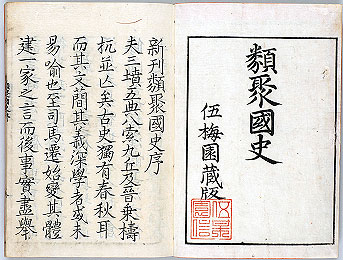 類聚國史
伍梅園藏版
新刊類聚國史序
夫三墳五典八索九丘及晉乗檮
杌並亾矣古史獨有春秋耳
而其文簡其義深學者或未
易喻也至司馬遷始變其體
建一家之言而後事實盡舉